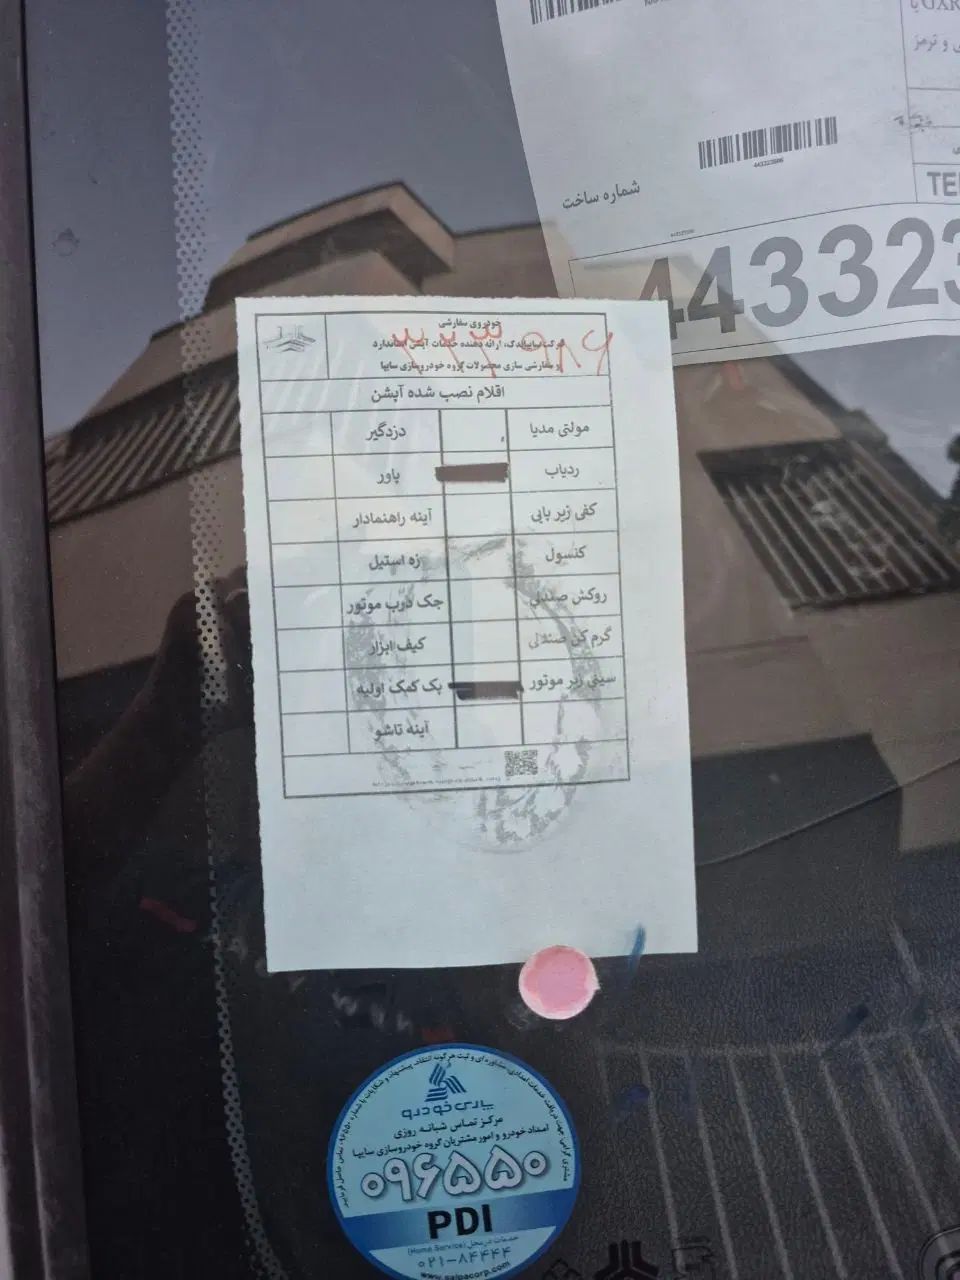 GXR با
ی و ترمز
443323086
شماره ساخت
TE
443323
خودروی سفارشی
شرکت سایپایدک، ارائه دهنده خدمات آپشن استاندارد
و سفارشی سازی محصولات گروه خودروسازی سایپا
اقلام نصب شده آپشن
مولتی مدیا دزدگیر
ردیاب پاور
کفی زیر پایی آینه راهنمادار
کنسول زه استیل
روکش صندلی جک درب موتور
گرم کن صندلی کیف ابزار
سینی زیر موتور پک کمک اولیه
آینه تاشو
مرکز تماس شبانه روزی
امداد خودرو و امور مشتریان گروه خودروسازی سایپا
۰۹۶۵۵۰
PDI
خدمات در محل (Home Service)
۰۲۱-۸۴۴۴۴
www.saipacorp.com